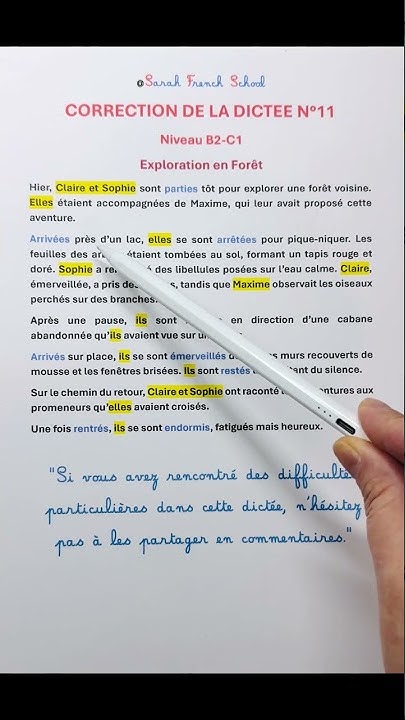 @Sarah French School
CORRECTION DE LA DICTEE N°11
Niveau B2-C1
Exploration en Forêt
Hier, Claire et Sophie sont parties tôt pour explorer une forêt voisine.
Elles étaient accompagnées de Maxime, qui leur avait proposé cette
aventure.
Arrivées près d'un lac, elles se sont arrêtées pour pique-niquer. Les
feuilles des étaient tombées au sol, formant un tapis rouge et
doré. Sophie a des libellules posées sur l'eau calme. Claire,
émerveillée, a pris tandis que Maxime observait les oiseaux
perchés sur des branches.
Après une pause, ils sont en direction d'une cabane
abandonnée qu'ils avaient vue sur
Arrivés sur place, ils se sont émerveillés murs recouverts de
mousse et les fenêtres brisées. Ils sont restés du silence.
Sur le chemin du retour, Claire et Sophie ont raconté aux
promeneurs qu'elles avaient croisés.
Une fois rentrés, ils se sont endormis, fatigués mais heureux.
"Si vous avez rencontré des
particulières dans cette dictée, n'hésitez
pas à les partager en commentaires."